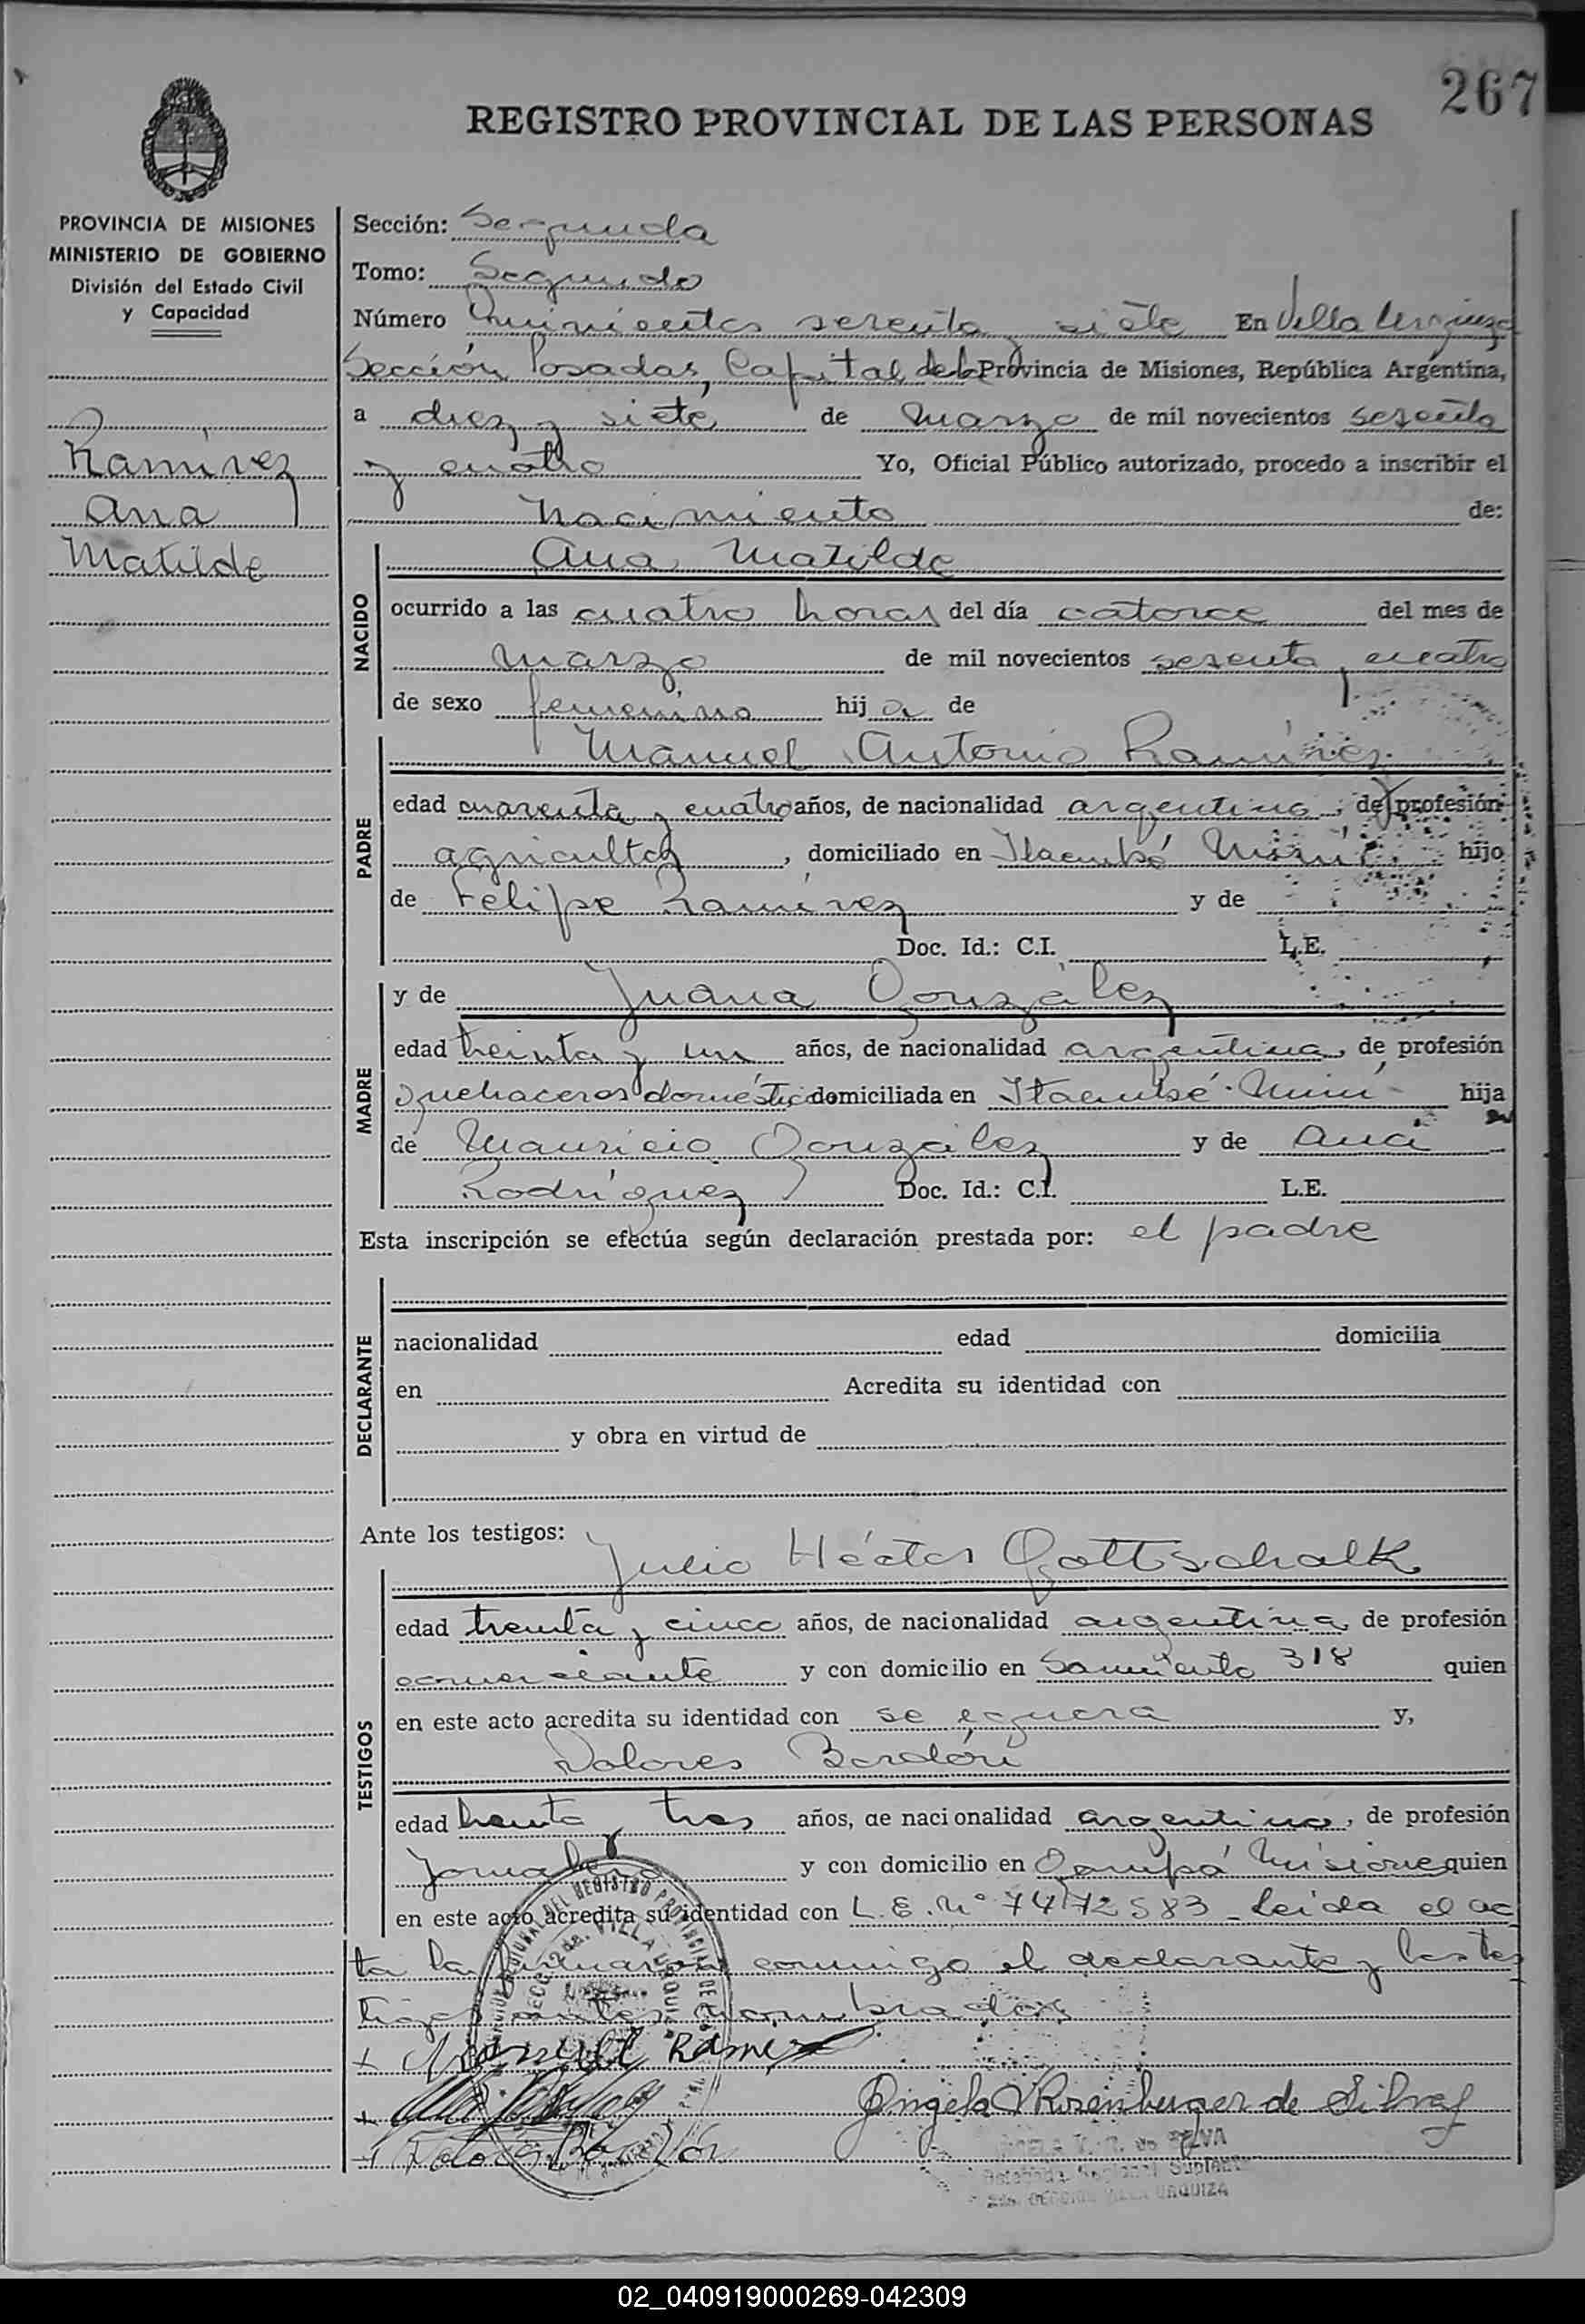 267
REGISTRO PROVINCIAL DE LAS PERSONAS
PROVINCIA DE MISIONES
MINISTERIO DE GOBIERNO
División del Estado Civil
y Capacidad
Ramírez
Ana
Matilde
Sección: Segunda
Tomo: Segundo
Número Quinientos sesenta siete En Villa Urquiza
Sección Posadas, Capital de la Provincia de Misiones, República Argentina,
a diez y siete de marzo de mil novecientos sesenta
y cuatro Yo, Oficial Público autorizado, procedo a inscribir el
nacimiento de:
NACIDO
Ana Matilde
ocurrido a las cuatro horas del día catorce del mes de
marzo de mil novecientos sesenta y cuatro
de sexo femenino hij a de
PADRE
Manuel Antonio Ramírez
edad cuarenta y cuatro años, de nacionalidad argentina, de profesión
agricultor, domiciliado en Itaembé Miní hijo
de Felipe Ramírez y de
Doc. Id.: C.I. L.E.
MADRE
y de Juana González
edad treinta y un años, de nacionalidad argentina, de profesión
quehaceres domésticos domiciliada en Itaembé Miní hija
de Mauricio González y de Ana
Rodríguez Doc. Id.: C.I. L.E.
Esta inscripción se efectúa según declaración prestada por: el padre
DECLARANTE
nacionalidad edad domicilia
en Acredita su identidad con
y obra en virtud de
Ante los testigos:
TESTIGOS
Julio Héctor Gottschalk
edad treinta y cinco años, de nacionalidad argentina, de profesión
comerciante y con domicilio en Sarmiento 318 quien
en este acto acredita su identidad con y,
Dolores Bordón
edad treinta y tres años, de nacionalidad argentina, de profesión
Jornalero y con domicilio en Misiones quien
en este acto acredita su identidad con L.E. Nº 7472583 - Leida el ac
ta la firmaron conmigo el declarante y los tes
tigos antes nombrados
+ Manuel Ramirez
Angela V Rosenberger de Silva
+ Dolores Bordón
ANGELA V. R. de SILVA
Delegada Seccional Suplente
2da. SECCION VILLA URQUIZA
02_040919000269-042309